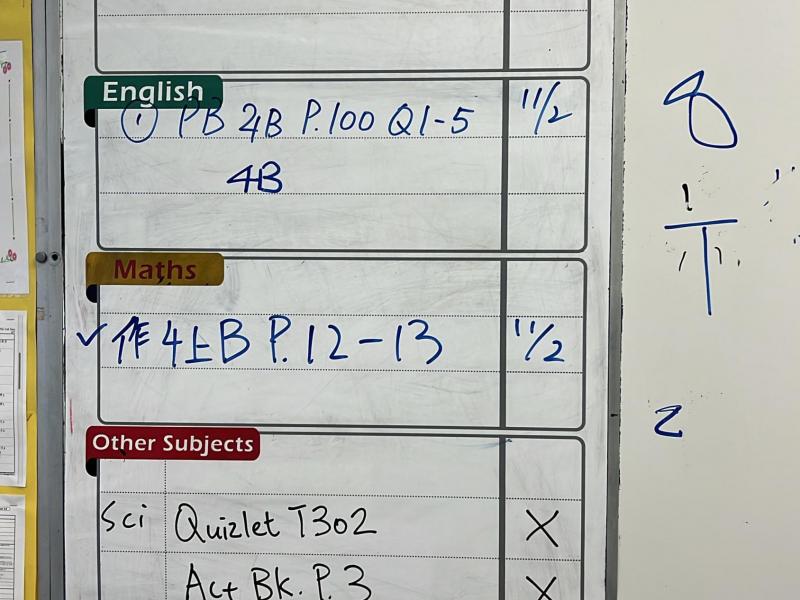 English
① PB 4B P.100 Q1-5 11/2
4B
Maths
✓ 作 4上B P.12-13 11/2
Other Subjects
Sci Quizlet T302 X
Act Bk. P.3 X
8
2